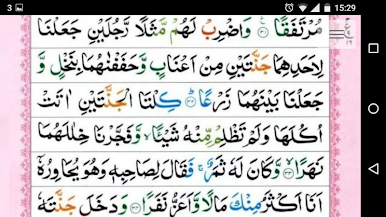 3 15:29
مُرْتَفَقًا ۝٣١ وَاضْرِبْ لَهُمْ مَّثَلًا رَّجُلَيْنِ جَعَلْنَا
لِاَحَدِهِمَا جَنَّتَيْنِ مِنْ اَعْنَابٍ وَّحَفَفْنٰهُمَا بِنَخْلٍ وَّ
جَعَلْنَا بَيْنَهُمَا زَرْعًا ۝٣٢ كِلْتَا الْجَنَّتَيْنِ اٰتَتْ
اُكُلَهَا وَلَمْ تَظْلِمْ مِّنْهُ شَيْـًٔا وَّفَجَّرْنَا خِلٰلَهُمَا
نَهَرًا ۝٣٣ وَّكَانَ لَهٗ ثَمَرٌ ۚ فَقَالَ لِصَاحِبِهٖ وَهُوَ يُحَاوِرُهٗٓ
اَنَا اَكْثَرُ مِنْكَ مَالًا وَّاَعَزُّ نَفَرًا ۝٣٤ وَدَخَلَ جَنَّتَهٗ